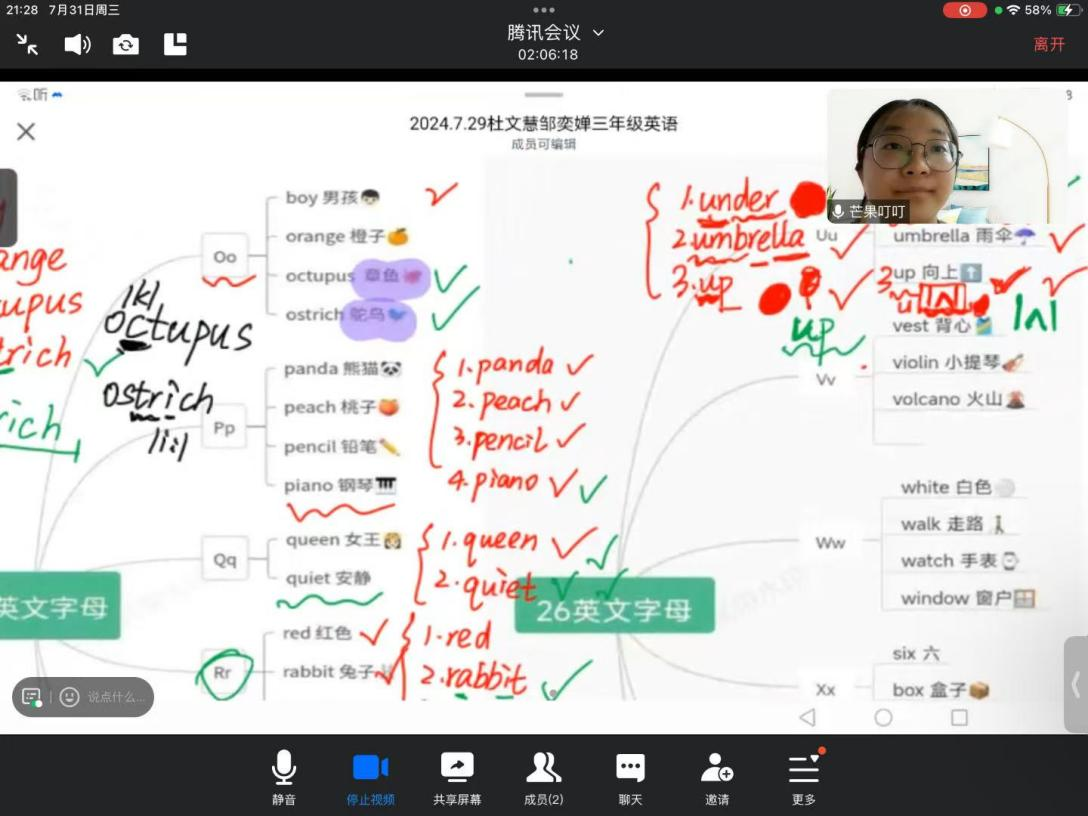 21:28 7月31日周三
58%
腾讯会议
02:06:18
离开
听
2024.7.29杜文慧邹奕婵三年级英语
成员可编辑
芒果叮叮
ange
upus
trich
rich
/k/
octupus
ostrich
/i:/
Oo
boy 男孩
orange 橙子
octupus 章鱼
ostrich 鸵鸟
Pp
panda 熊猫
peach 桃子
pencil 铅笔
piano 钢琴
1.panda
2.peach
3.pencil
4.piano
Qq
queen 女王
quiet 安静
1.queen
2.quiet
英文字母
Rr
red 红色
rabbit 兔子
1.red
2.rabbit
26英文字母
1.under
2.umbrella
3.up
up
Uu
umbrella 雨伞
up 向上
Vv
vest 背心
violin 小提琴
volcano 火山
Ww
white 白色
walk 走路
watch 手表
window 窗户
Xx
six 六
box 盒子
说点什么...
静音
停止视频
共享屏幕
成员(2)
聊天
邀请
更多